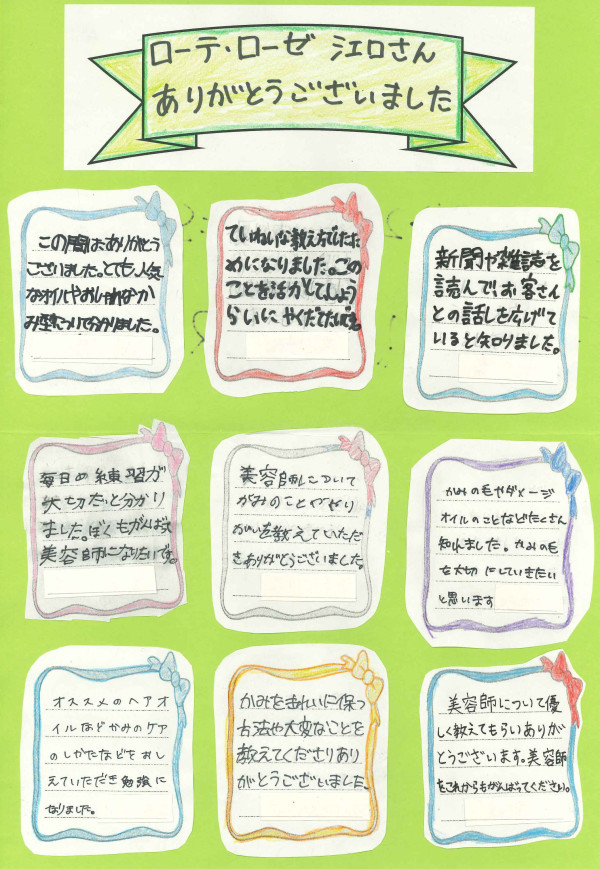 ローテ・ローゼ 江口さん
ありがとうございました
この間はありがとう
ございました。とても人気
なオイルやおしゃれなか
み型について分かりました。
ていねいな教え方でため
になりました。この
ことを活かしてしょう
らいに やくだてたいです。
新聞や雑誌を
読んで、お客さん
との話しを広げて
いると知りました。
毎日の練習が
大切だと分かり
ました。ぼくもがんばって
美容師になりたいです。
美容師について
かみのことややり
がいを教えていただ
きありがとうございました。
かみの毛やダメージ
オイルのことなどたくさん
知れました。かみの毛
を大切にしていきたい
と思います
オススメのヘアオ
イルなどかみのケア
のしかたなどをおし
えていただき勉強に
なりました。
かみをきれいに保つ
方法や大変なことを
教えてくださりあり
がとうございました。
美容師について優
しく教えてもらいありが
とうございます。美容師
をこれからもがんばってください。